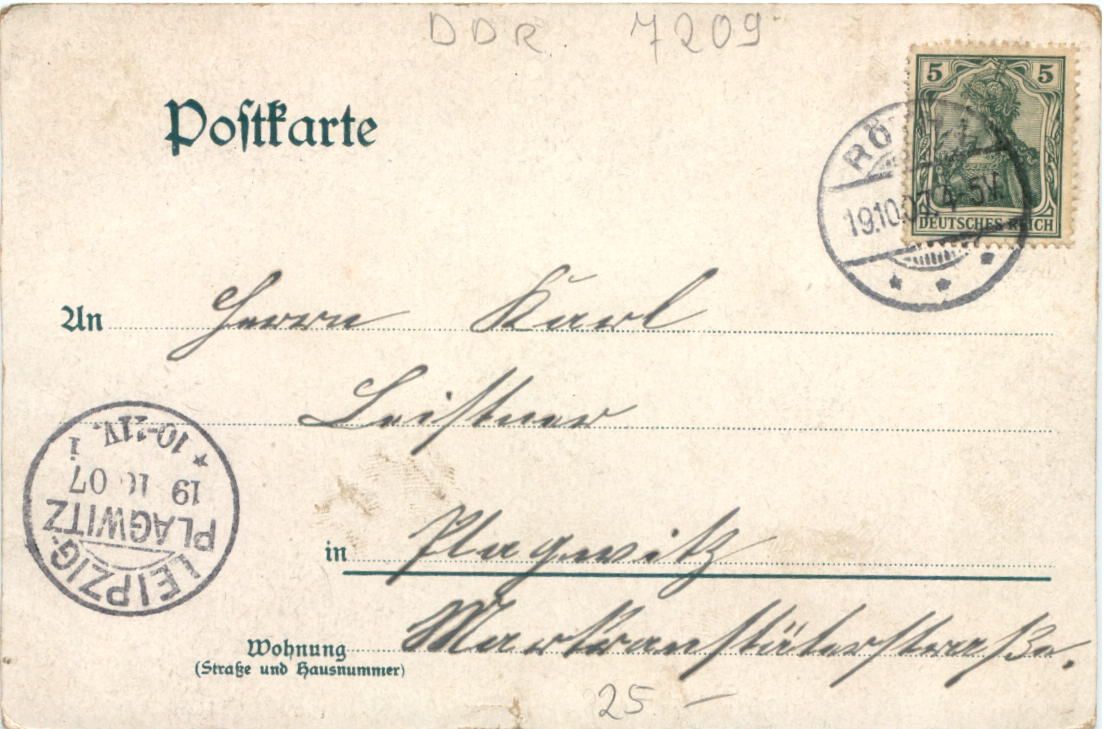 DDR 7209
Postkarte
5 5
DEUTSCHES REICH
19.10.07. 4-5V.
An Herrn Karl
Leistner
in Plagwitz
Wohnung Markranstäterstraße.
(Straße und Hausnummer)
LEIPZIG-
PLAGWITZ
19 10 07
* 10-11V.
25 –